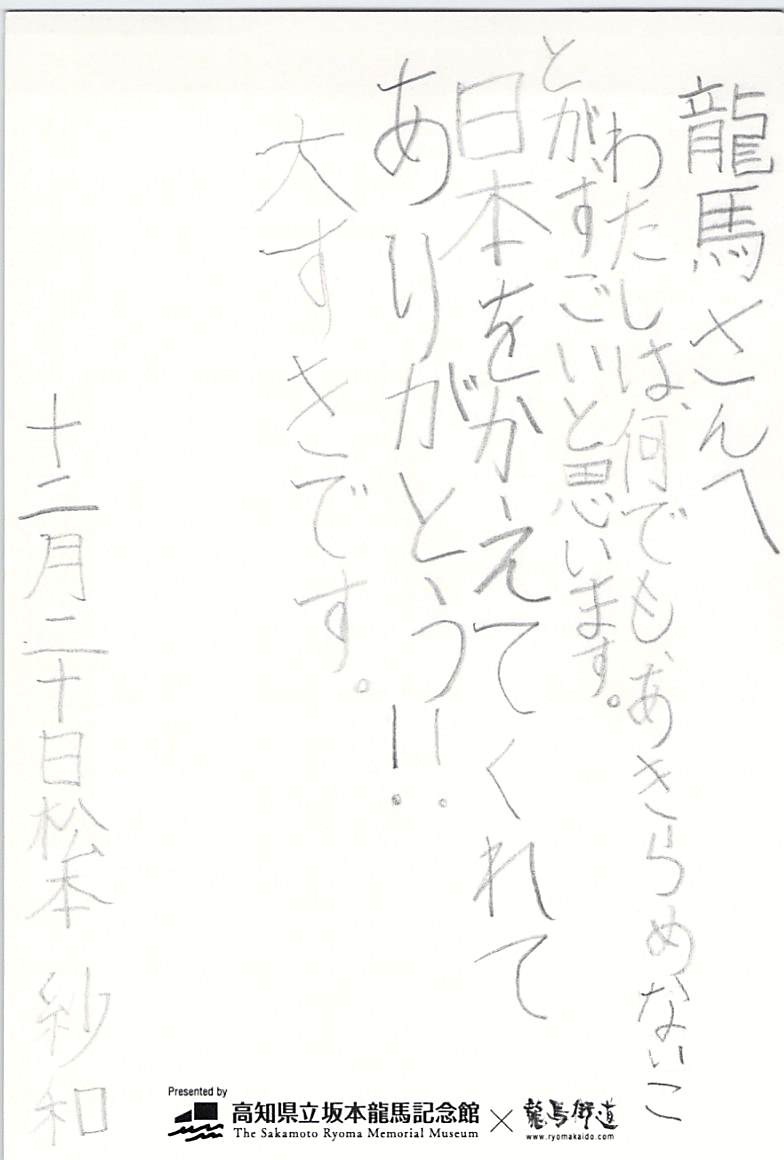 龍馬さんへ
わたしは、何でも、あきらめないこ
とが、すごいと思います。
日本をかえてくれて
ありがとう!!
大すきです。
十二月二十日松本 紗和
Presented by
高知県立坂本龍馬記念館
The Sakamoto Ryoma Memorial Museum
×
龍馬街道
www.ryomakaido.com